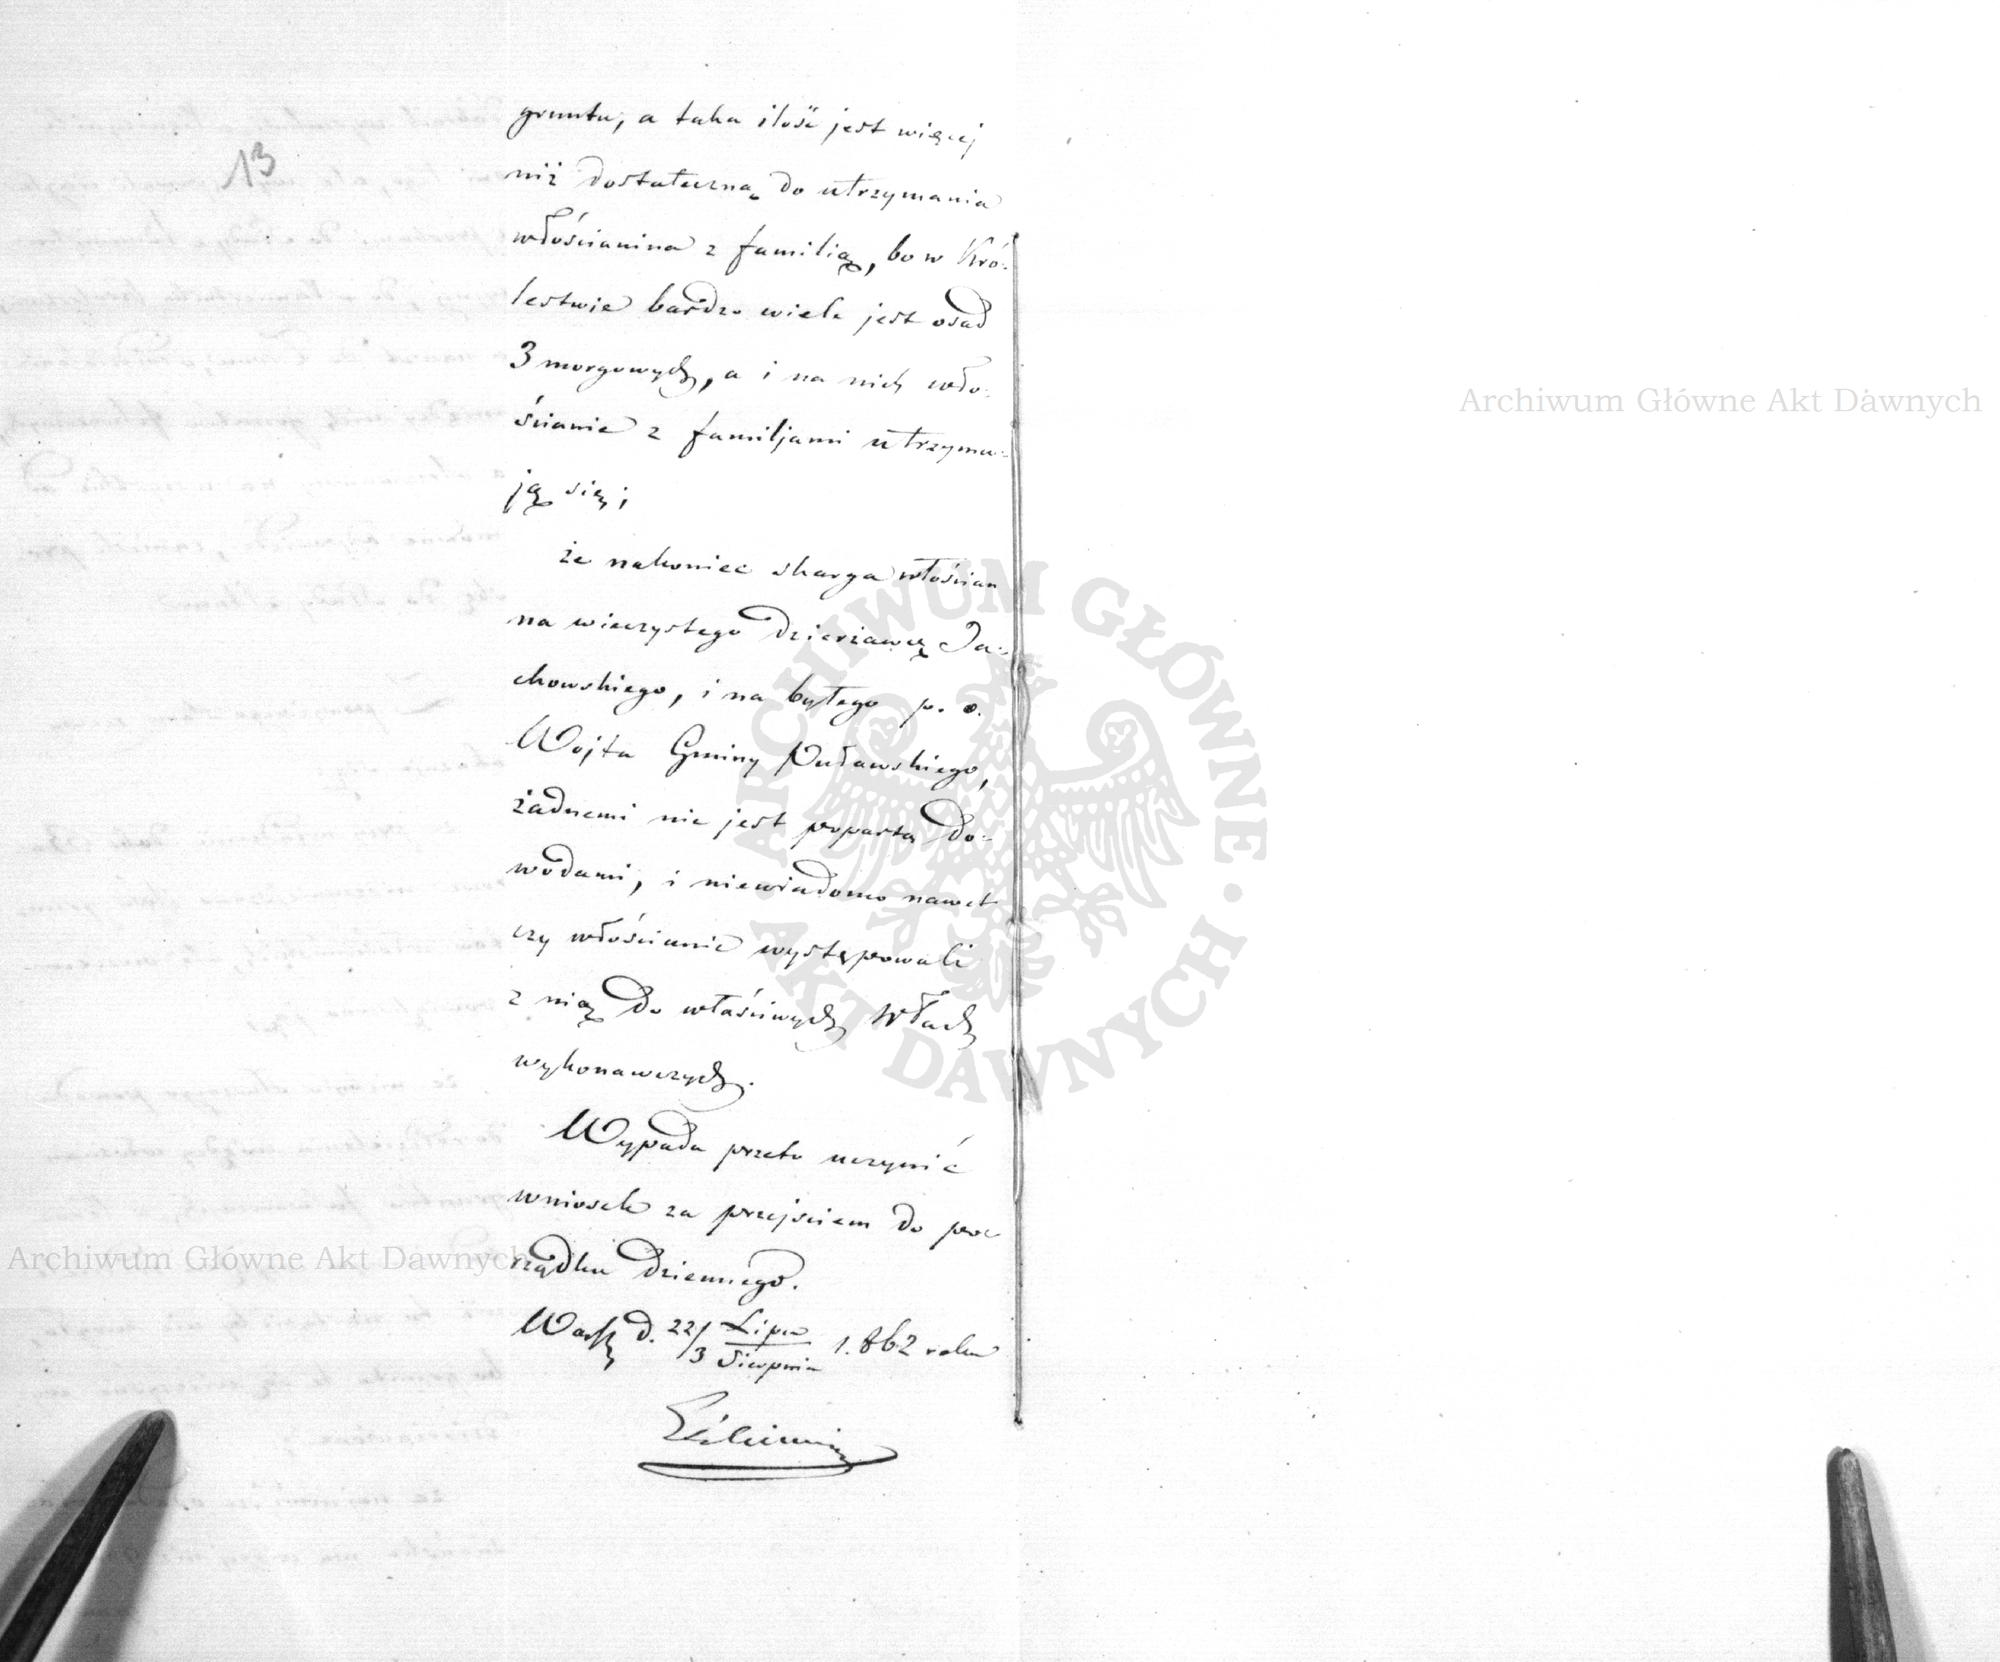 13
gruntu, a taka ilość jest więcej
niż dostateczną do utrzymania
włościanina z familią, bo w Kró-
lestwie bardzo wiele jest osad
3 morgowych, a i na nich wło-
ścianie z familjami utrzymu-
ją się;
że nakoniec skarga włościan
na wieczystego dzierżawcę Ja-
chowskiego, i na byłego p. o.
Wojta Gminy Puławskiego,
żadnemi nie jest popartą do-
wodami, i niewiadomo nawet
czy włościanie występowali
z nią do właściwych Władz
wykonawczych.
Wypada przeto uczynić
wniosek za przejściem do po-
rządku dziennego.
Warsz d. 22/3 Lipca/Sierpnia 1.862 roku
Archiwum Główne Akt Dawnych
Archiwum Główne Akt Dawnych
ARCHIWUM GŁÓWNE AKT DAWNYCH